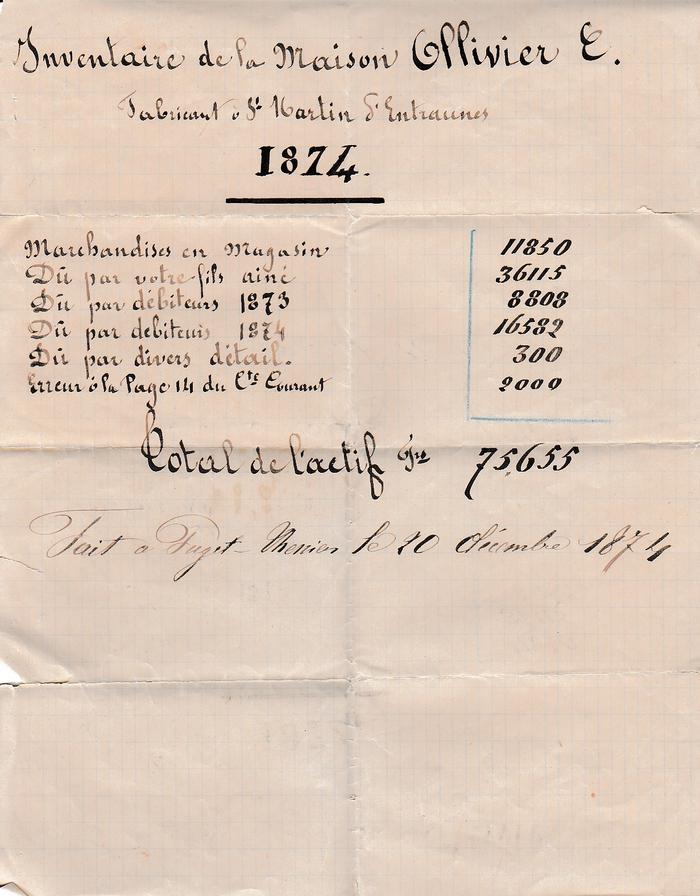 Inventaire de la Maison Ollivier E.
Fabricant à St Martin d'Entraunes
1874.
Marchandises en Magasin 11850
Dû par votre fils ainé 36115
Dû par débiteurs 1873 8808
Dû par debiteurs 1874 16582
Dû par divers détail. 300
Erreur à la Page 14 du Cte Courant 2000
Total de l'actif Frs 75655
Fait a Puget-Thenier le 20 décembre 1874